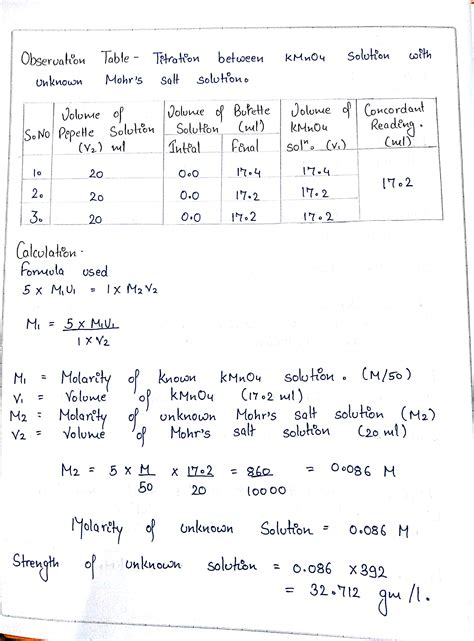 Observation Table - Titration between KMnO4 Solution with
unknown Mohr's salt solution.
S.No
Volume of Pepette Solution (V2) ml
Volume of Burette Solution (ml)
Intial
final
Volume of KMnO4 solⁿ. (V1)
Concordant Reading. (ml)
1. 20 0.0 17.4 17.4
2. 20 0.0 17.2 17.2
3. 20 0.0 17.2 17.2
17.2
Calculation.
Formula used
5 x M1V1 = 1 x M2V2
M1 = 5 x M1V1 / 1 x V2
M1 = Molarity of known KMnO4 solution. (M/50)
V1 = Volume of KMnO4 (17.2 ml)
M2 = Molarity of unknown Mohr's salt solution (M2)
V2 = Volume of Mohr's salt solution (20 ml)
M2 = 5 x M/50 x 17.2/20 = 860/10000 = 0.086 M
Molarity of unknown Solution = 0.086 M
Strength of unknown solution = 0.086 x 392
= 32.712 gm/l.